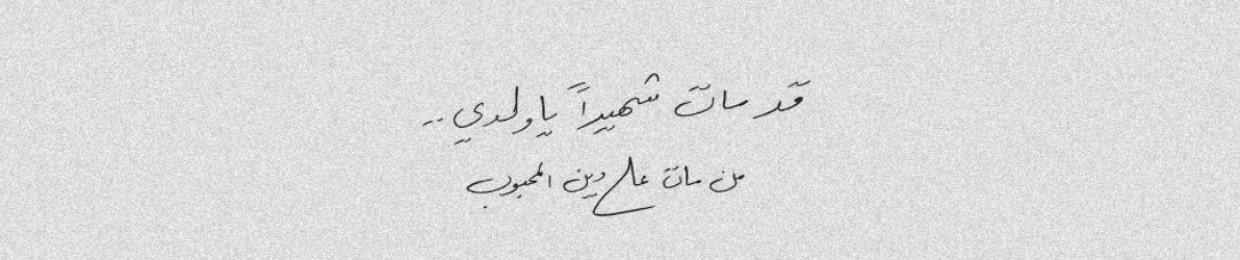 قد مات شهيداً يا ولدي..
من مات على دين المحبوب